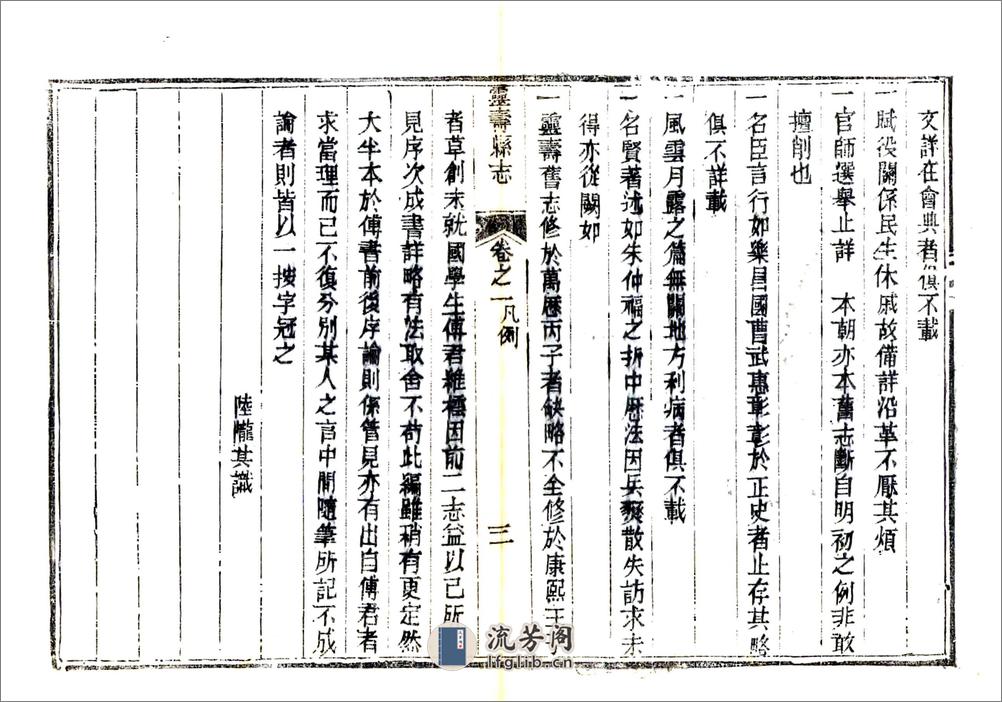 文詳在會典者俱不載
一賦役關係民生休戚故備詳沿革不厭其煩
一官師選舉止詳　本朝亦本舊志斷自明初之例非敢
擅削也
一名臣言行如樂昌國曹武惠彰彰於正史者止存其略
俱不詳載
一風雲月露之篇無關地方利病者俱不載
一名賢著述如朱仲福之折中歷法因兵燹散失訪求未
得亦從闕如
一靈壽舊志修於萬歷丙子者缺略不全修於康熙壬子
靈壽縣志
卷之一凡例
三
者草創未就國學生傅君維橒因前二志益以已所
見序次成書詳略有法取舍不苟此編雖稍有更定然
大半本於傅書前後序論則係管見亦有出自傅君者
求當理而已不復分別某人之言中間隨筆所記不成
論者則皆以一按字冠之
陸隴其識
流芳阁
lfglib.cn